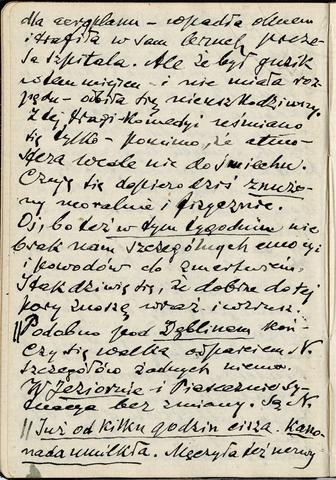 dla aeroplanu – wpadła oknem
i trafiła w sam brzuch preze-
sa szpitala. Ale że był guzik
w tem miejscu – i nie miała roz-
pędu – odbiła się nieszkodliwie.
Z tej tragi-komedyi uśmiano
się tylko – pomimo, że atmo-
sfera wcale nie do śmiechu.
Czuję się dopiero dziś znużo-
ny moralnie i fizycznie.
Oj, bo też w tym tygodniu nie
brak nam szczególnych emocyi
i powodów do zmartwień.
I tak dziwię się, że dobrze do tej
pory znoszę wraż. i wzrusz.
|| Podobno pod Dęblinem koń-
czy się walka odparciem N.
szczegółów żadnych niema.
W Jeziornie i Piasecznie sy-
tuacya bez zmiany. Są N.
|| Już od kilku godzin cisza. Kano-
nada umilkła. Męczyła też nerwy